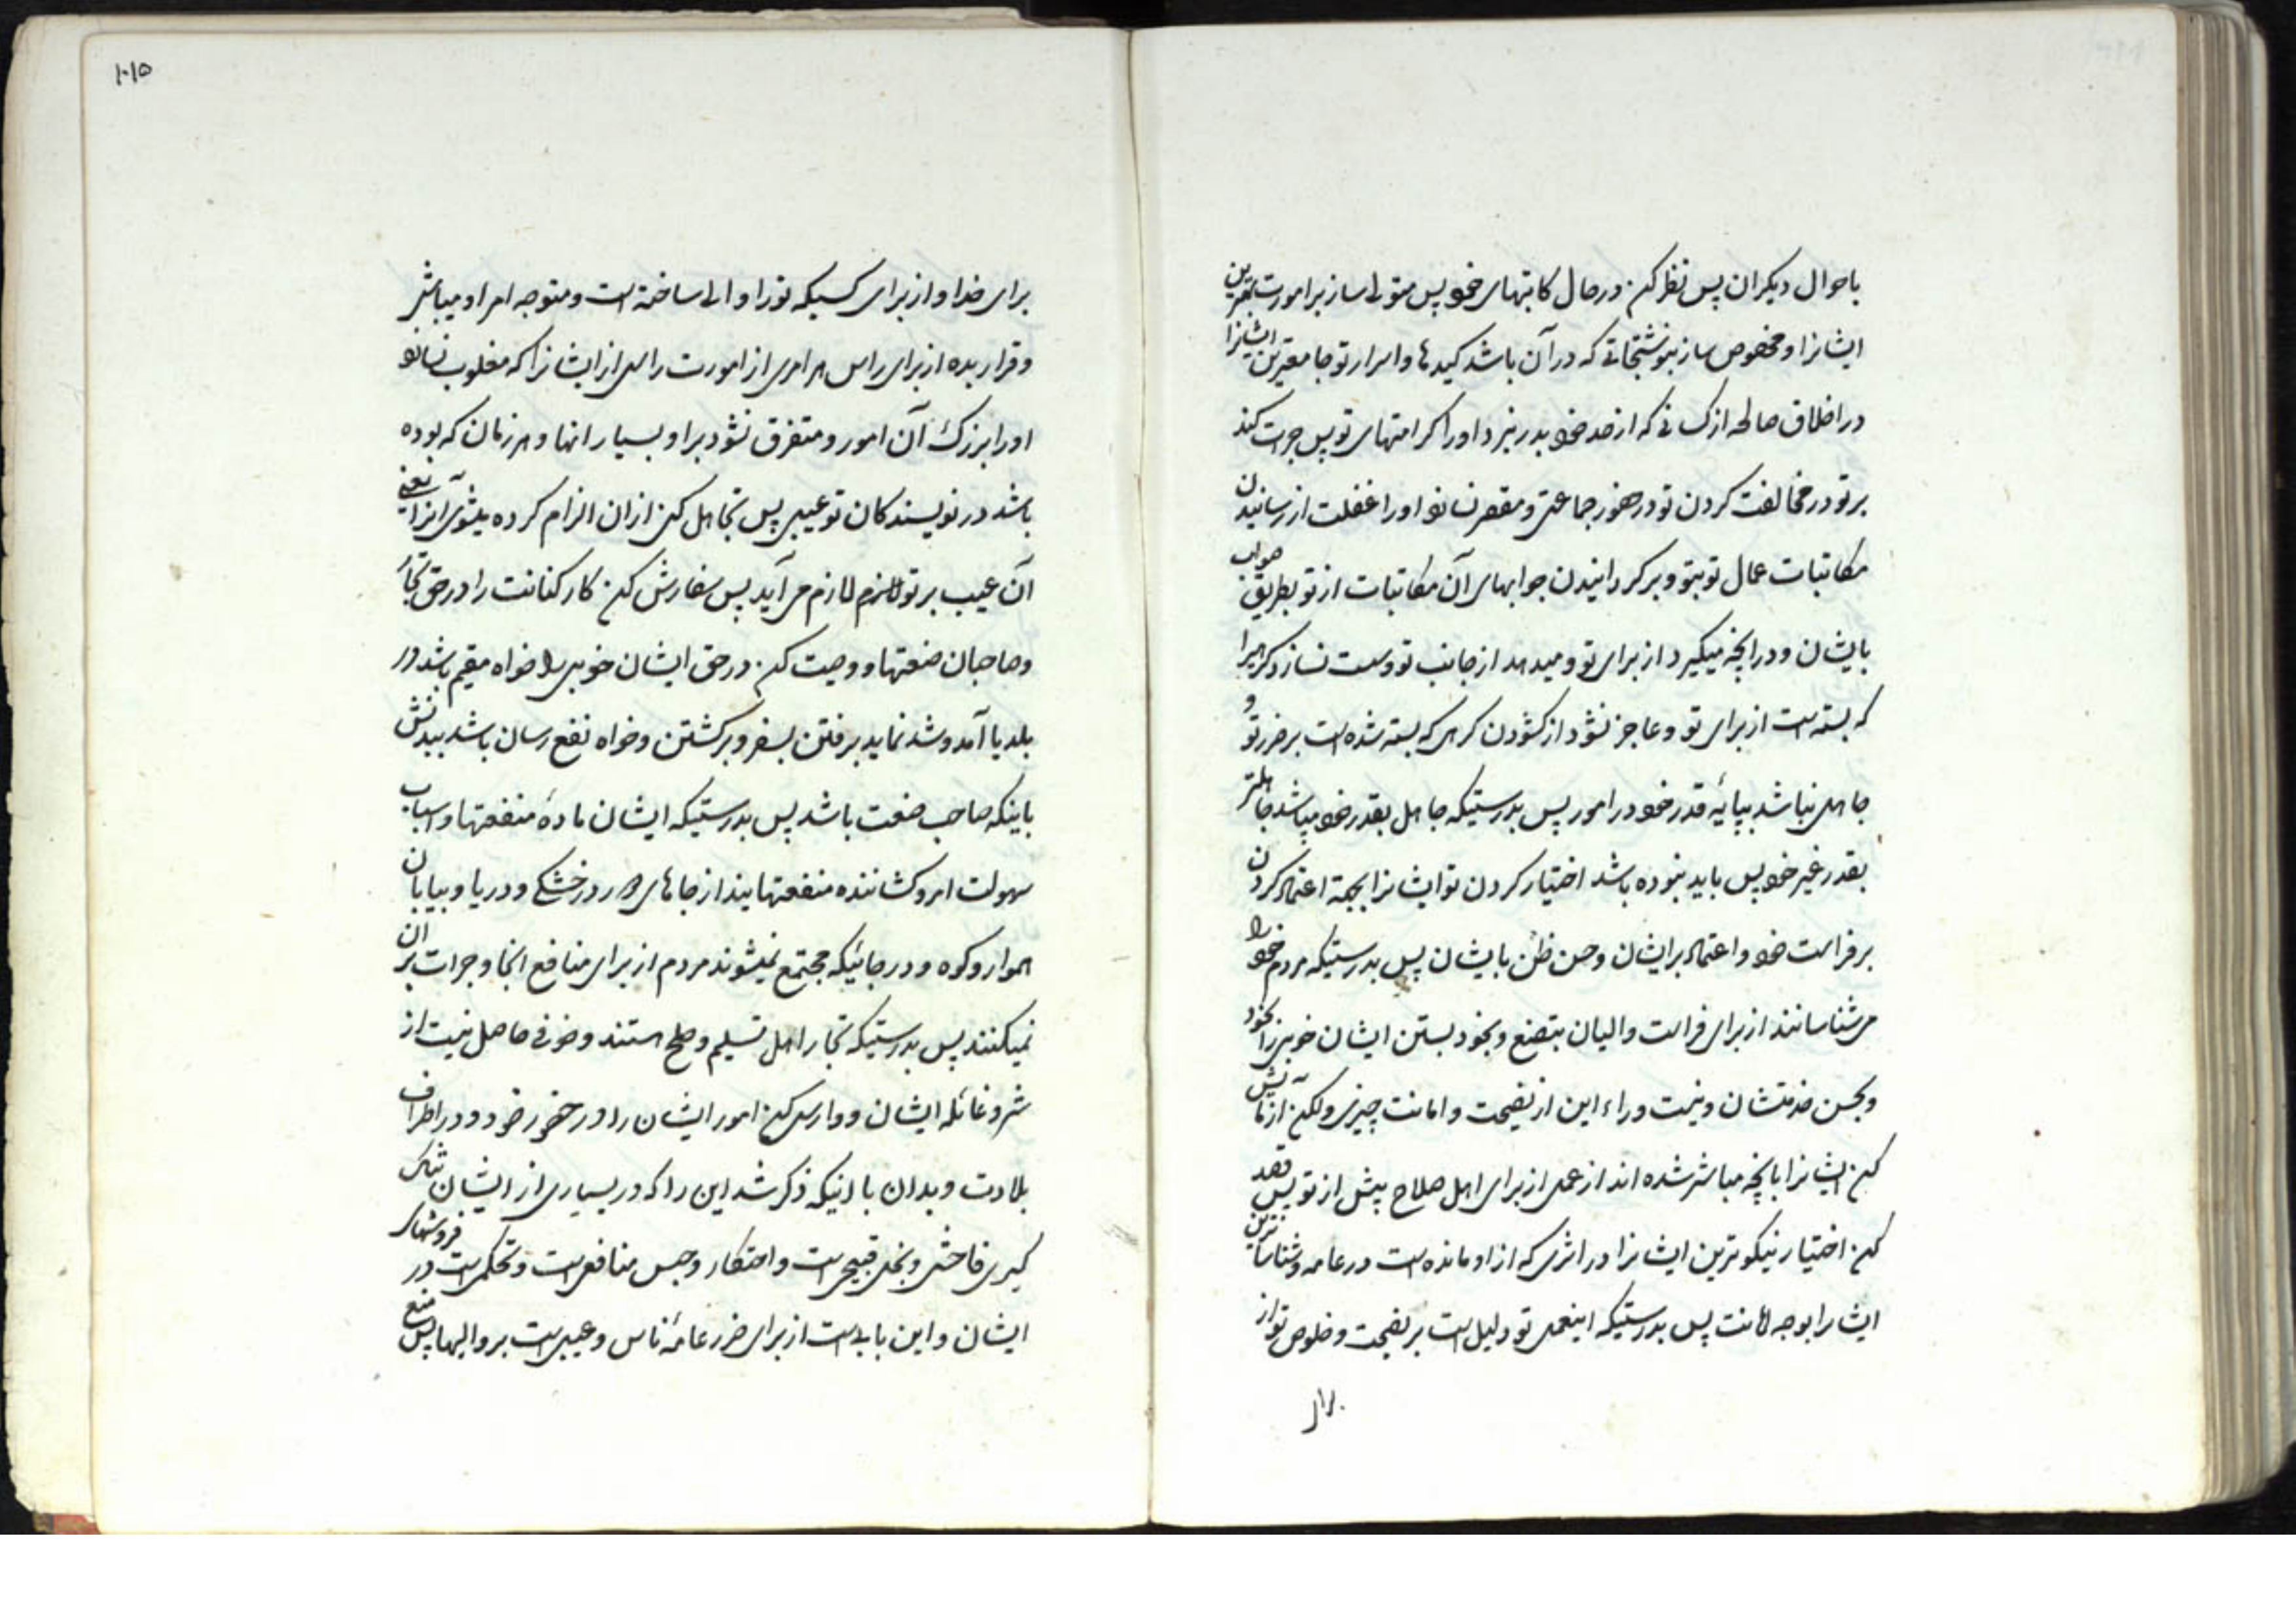 باحوال دیکران پس نظر کن در حال کاتبهای خود پس متولی ساز بر امورت بهترین
ایشانرا و مخصوص ساز بنوشتجاتی که در آن باشد کیدها و اسرار تو جامعترین ایشانرا
در اخلاق صالحه از کسانی که از حد خود بدر نبرد او را کرامتهای تو پس جرات کند
بر تو در مخالفت کردن تو در حضور جماعتی و مقصر نسازد او را غفلت از رسانیدن
مکاتبات عمال تو بتو و برکردانیدن جوابهای آن مکاتبات از تو بطریق صواب
بایشان و در آنچه میکیرد از برای تو و میدهد از جانب تو و سست نسازد کرهیرا
که بسته است از برای تو و عاجز نشود از کشودن کرهی که بسته شده است بر ضرر تو و
جاهل نباشد بپایهٔ قدر خود در امور پس بدرستیکه جاهل بقدر خود میباشد جاهلتر
بقدر غیر خود پس باید نبوده باشد اختیار کردن تو ایشانرا بجهة اعتماد کردن
بر فراست خود و اعتماد بر ایشان و حسن ظن بایشان پس بدرستیکه مردم خود را
می شناسانند از برای فراست والیان بتصنع و بخود بستن ایشان خوبیرا بخود
و بحسن خدمتشان و نیست وراء این از نصیحت و امانت چیزی ولکن آزمایش
کن ایشانرا بآنچه مباشر شده اند از عمل از برای اهل صلاح پیش از تو پس قصد
کن اختیار نیکوترین ایشانرا در اثری که از او مانده است در عامه و شناساترین
ایشانرا بوجه امانت پس بدرستیکه اینعمل تو دلیل است بر نصیحت و خلوص تو از
برای
۱۰۱۵
برای خدا و از برای کسیکه تو را والی ساخته است و متوجه امر او میباشی
و قرار بده از برای راس هر امری از امورت راسی از ایشانرا که مغلوب نسازد
او را بزرک آن امور و متفرق نشود بر او بسیار آنها و هر زمان که بوده
باشد در نویسندکان تو عیبی پس تجاهل کنی از ان الزام کرده میشوی آنرا یعنی
آن عیب بر تو لازم می آید پس سفارش کن کارکنانت را در حق تجار
و صاحبان صنعتها و وصیت کن در حق ایشان خوبی را خواه مقیم باشد در
بلد یا آمد و شد نماید برفتن بسفر و برکشتن و خواه نفع رسان باشد ببدنش
باینکه صاحب صنعت باشد پس بدرستیکه ایشان مادهٔ منفعتها و اسباب
سهولت امر و کشاننده منفعتهایند از جاهای دور در خشکی و دریا و بیابان
هموار و کوه و در جائیکه مجتمع نمیشوند مردم از برای منافع آنجا و جرات بر ان
نمیکنند پس بدرستیکه تجار اهل تسلیم و صلح هستند و خوفی حاصل نیست از
شر و غائله ایشان و وارسی کن امور ایشان را در حضور خود و در اطراف
بلادت و بدان با اینکه ذکر شد این را که در بسیاری از ایشان تنک
کیری فاحش و بخل قبیحی است و احتکار و حبس منافعی است و تحکمی است در فروشهای
ایشان و این بابی است از برای ضرر عامهٔ ناس و عیبی است بر والیها پس منع